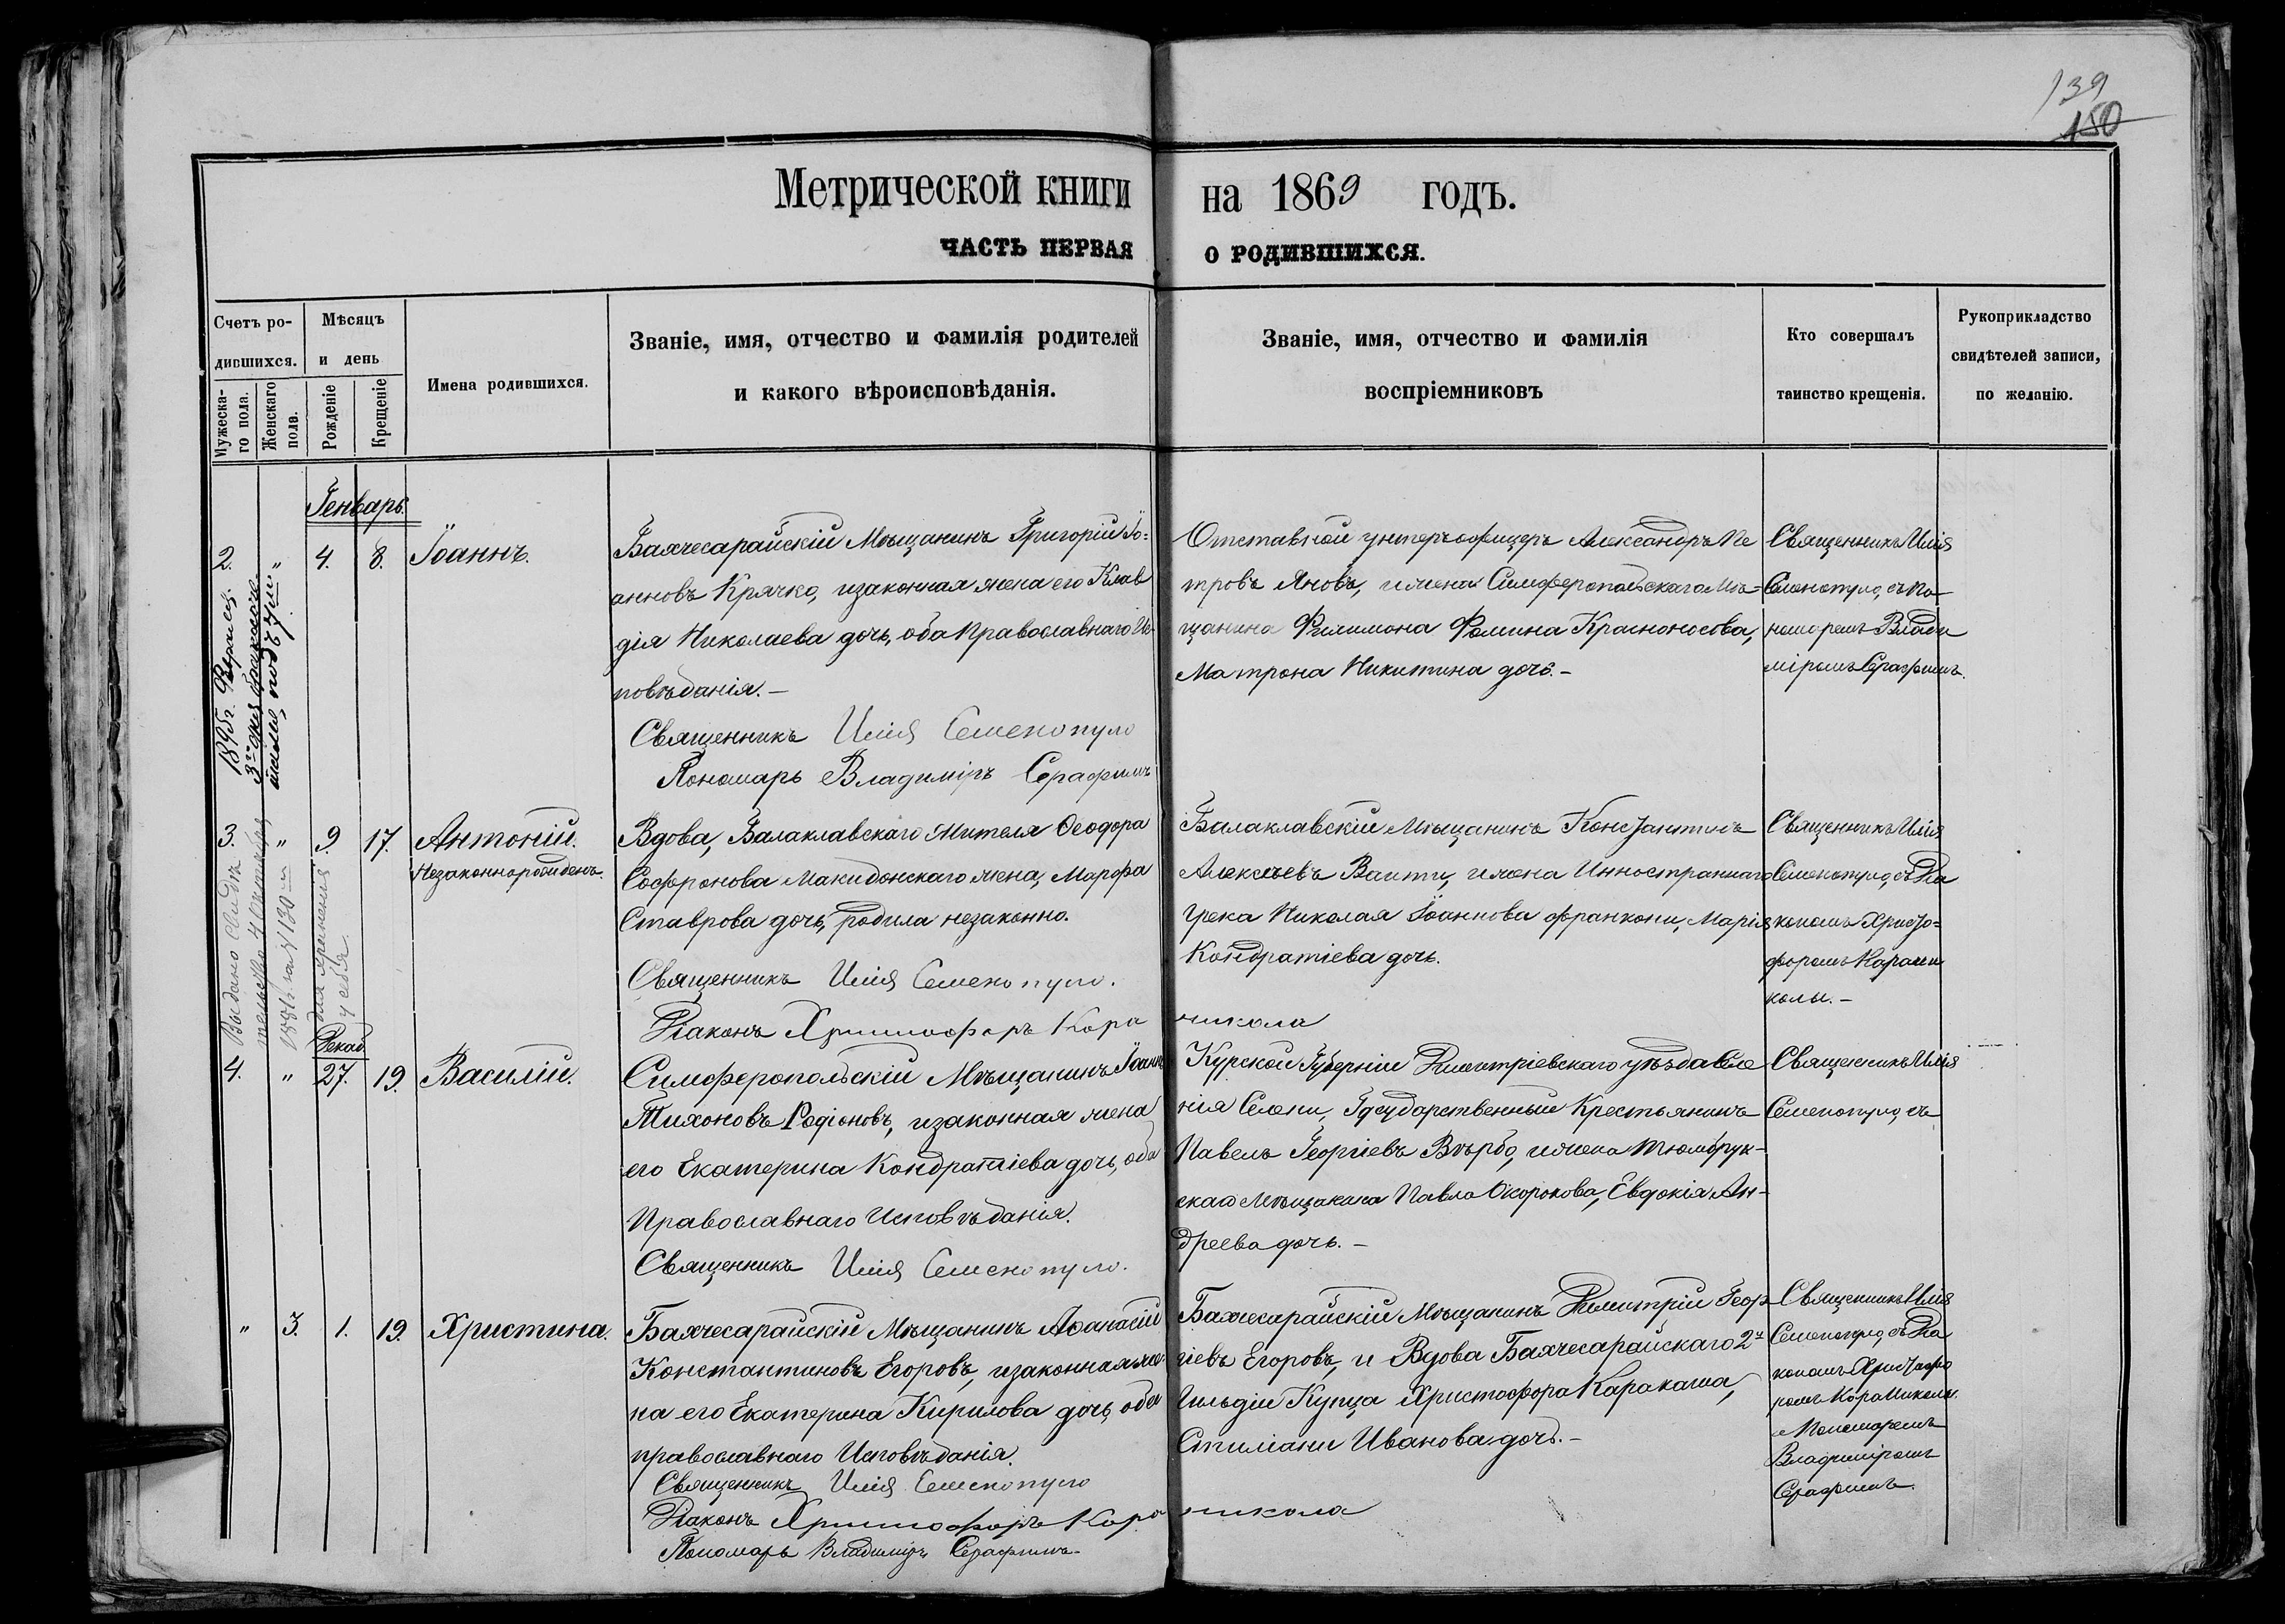 139
150
Метрической книги на 1869 годъ.
ЧАСТЬ ПЕРВАЯ О РОДИВШИХСЯ.
Счетъ ро-
дившихся.
Мужеска-
го пола.
Женскаго
пола.
Мѣсяцъ
и день
Рожденіе
Крещеніе
Имена родившихся.
Званіе, имя, отчество и фамилія родителей
и какого вѣроисповѣданія.
Званіе, имя, отчество и фамилія
воспріемниковъ
Кто совершалъ
таинство крещенія.
Рукоприкладство
свидѣтелей записи,
по желанію.
Генварь.
2. " 4. 8. Іоаннъ.
Бахчесарайскій Мѣщанинъ Григорій Іо-
анновъ Крячко, изаконная жена его Клав
дія Николаева дочь, оба Православнаго Ис-
повѣданія.-
Священникъ Илія Семенопуло
Пономарь Владиміръ Серафимъ
Отставной унтеръ офицеръ Александръ Пе
тровъ Яновъ, ижена Симферопольскаго Мѣ-
щанина Филимона Фомина Красноносова,
Матрона Никитина дочь.-
Священникъ Илія
Семенопуло, съ По-
номаремъ Влади
міромъ Серафимъ.
1895г. Февраля
3го дня
подъ №
3. " 9. 17. Антоній.
Незаконнорожденъ.
Вдова, Балаклавскаго Жителя Ѳеодора
Софронова Макидонскаго жена, Марфа
Ставрова дочь, родила незаконно.
Священникъ Илія Семенопуло.
Діаконъ Христофоръ Кара никола
Балаклавскій Мѣщанинъ Константинъ
Алексѣевъ Ваити, ижена Инностраннаго
Грека Николая Іоаннова Франкони, Марія
Кондратіева дочь.
Священникъ Илія
Семенопуло, съ Діа
кономъ Христо-
форомъ Карани
колы.-
Выдано свидѣ
тельство 4 Октября
1886 г. за № 130
для храненія
у себя.
Декаб.
4. " 27. 19. Василій.
Симферопольскій Мѣщанинъ Іоаннъ
Тихоновъ Родіоновъ, изаконная жена
его Екатерина Кондратіева дочь, оба
Православнаго Исповѣданія.
Священникъ Илія Семенопуло.
Курской Губерніи Димитріевскаго уѣзда Селе
нія Селени, Государственный Крестьянинъ
Павелъ Георгіевъ Вѣрбо, ижена Тюмбрук-
скаго Мѣщанина Павла Окорокова, Евдокія Ан-
дреева дочь.-
Священникъ Илія
Семенопуло, съ
" 3. 1. 19. Христина.
Бахчесарайскій Мѣщанинъ Аѳанасій
Константиновъ Егоровъ, изаконная же-
на его Екатерина Кирилова дочь, оба
православнаго Исповѣданія.
Священникъ Илія Семенопуло
Діаконъ Христофоръ Кара никола
Пономарь Владиміръ Серафимъ
Бахчесарайскій Мѣщанинъ Димитрій Геор
гіевъ Егоровъ, и Вдова Бахчесарайскаго 2й
Гильдіи Купца Христофора Каракаша,
Стиліани Иванова дочь.-
Священникъ Илія
Семенопуло, съ Діа
кономъ Христофо
ромъ Кораникола.
и Пономаремъ
Владиміромъ
Серафимъ.